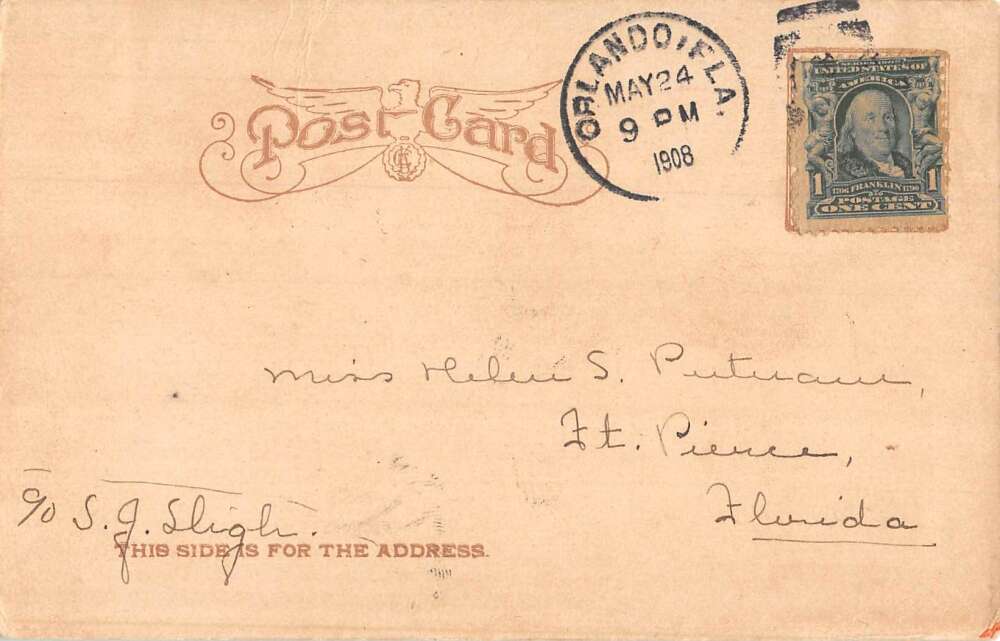 Post Card
ORLANDO, FLA.
MAY 24
9 PM
1908
SERIES 1902
UNITED STATES OF
AMERICA
1 1706 FRANKLIN 1790 1
POSTAGE
ONE CENT
Miss Helen S. Putnam,
Ft. Pierce,
Florida
c/o S. J. Sligh.
THIS SIDE IS FOR THE ADDRESS.